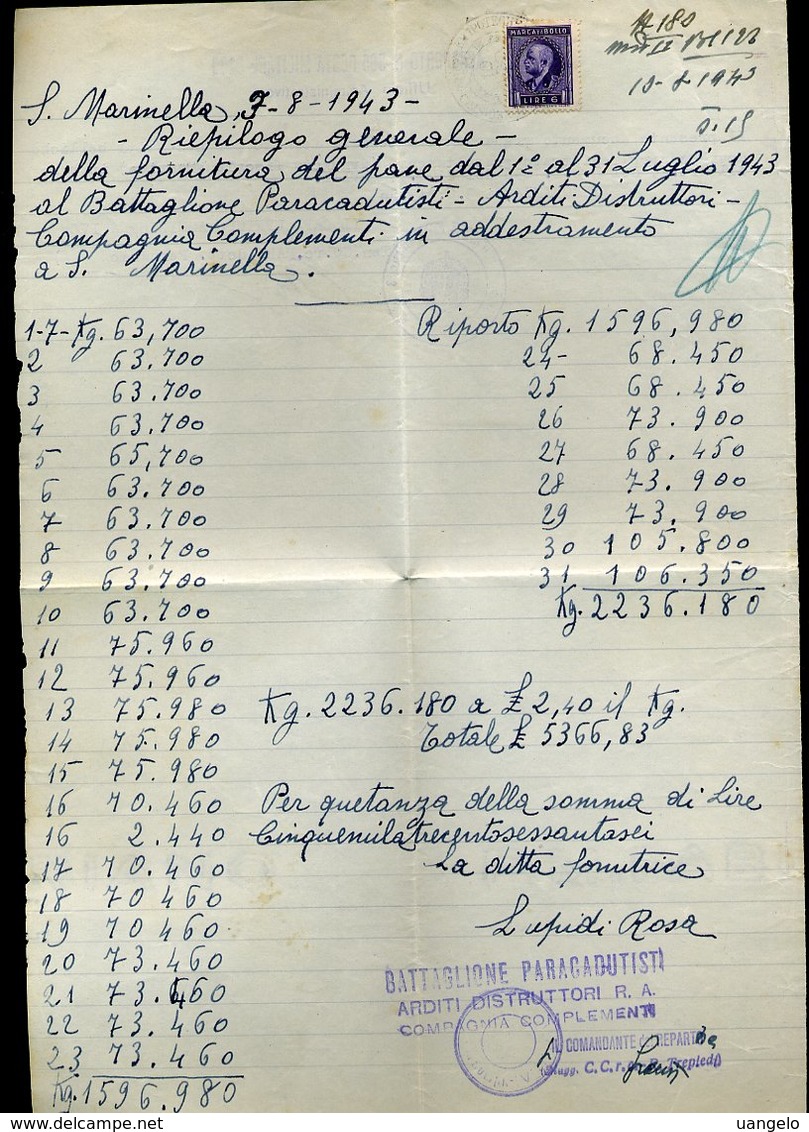 MARCA DA BOLLO
LIRE 6
N 180
10-8-1943
S. Marinella, 7-8-1943-
- Riepilogo generale -
della fornitura del pane dal 1° al 31 Luglio 1943
al Battaglione Paracadutisti - Arditi Distruttori -
Compagnia Complementi in addestramento
a S. Marinella.
1-7- Kg. 63,700
2 63.700
3 63.700
4 63.700
5 65,700
6 63.700
7 63.700
8 63.700
9 63.700
10 63.700
11 75.960
12 75.960
13 75.980
14 75.980
15 75.980
16 70.460
16 2.440
17 70.460
18 70.460
19 70460
20 73.460
21 73.460
22 73.460
23 73.460
Kg. 1596.980
Riporto Kg. 1596,980
24- 68.450
25 68.450
26 73.900
27 68.450
28 73.900
29 73.900
30 105.800
31 106.350
Kg. 2236.180
Kg. 2236.180 a £ 2,40 il Kg.
Totale £ 5366,83
Per quetanza della somma di Lire
Cinquemilatrecentosessantasei
La ditta fornitrice
Lupidi Rosa
BATTAGLIONE PARACADUTISTI
ARDITI DISTRUTTORI R. A.
COMPAGNIA COMPLEMENTI
IL COMANDANTE di REPARTO
(Magg. C.C.r.n. P. Trepiedi)
uangelo